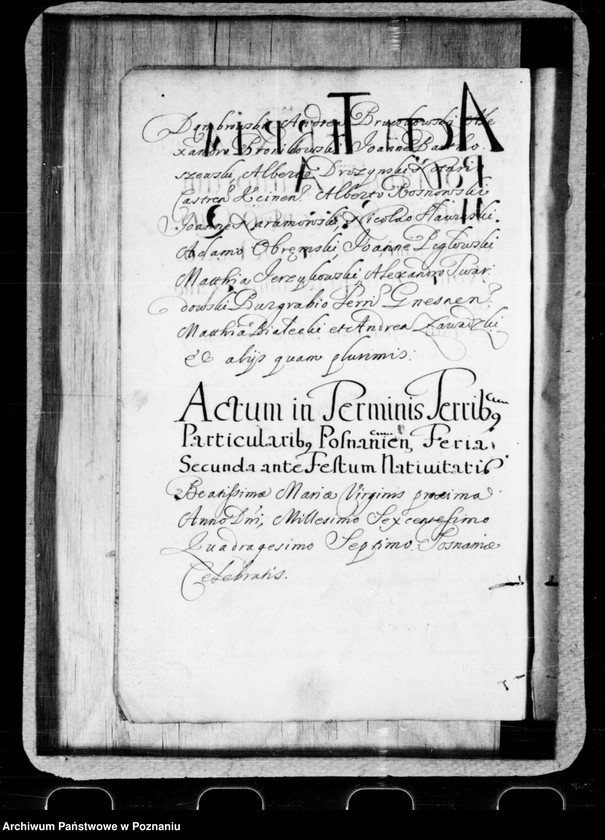 Dambrowski, Andrea Bronikowski Ale
xandro Bronikowski Joanne Bartho
szewski, Alberto Drozynski
Castren Kcinen. Alberto Rosnowski
Joanne Karamowski, Nicolao
Adamo Obremski, Joanne Peglowski
Matthia Jerzykowski, Alexandro Twar
dowski Burgrabio Terri Gnesnen.
Matthia Białecki et Andrea Zawadzki
& alijs quam plurimis.
Actum in Terminis Terribq cum
Particularibq Posnanien cum, Feria
Secunda ante Festum Natiuitatis
Beatissimæ Mariæ Virginis proxima
Anno Dni, Millesimo Sexcentesimo
Quadragesimo Septimo. Posnaniæ
Celebratis.
Archiwum Państwowe w Poznaniu